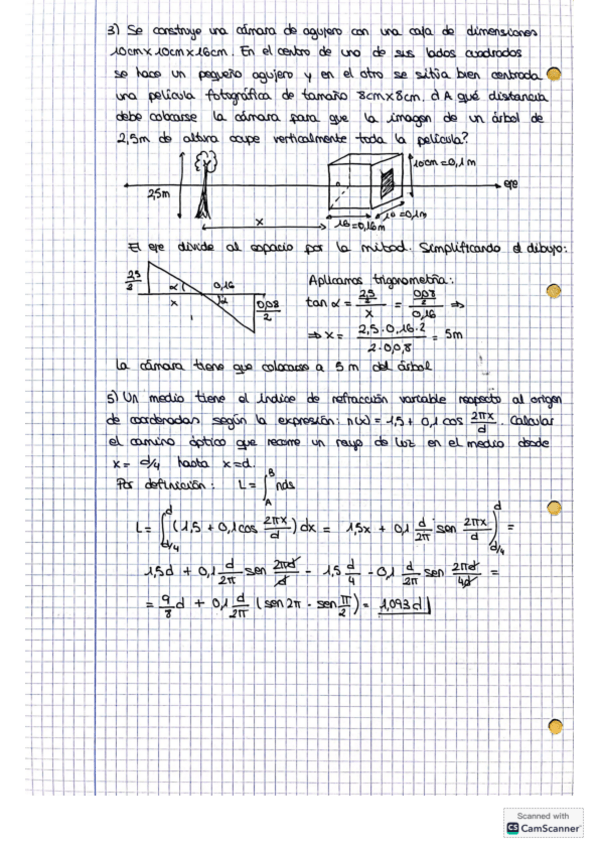 3) Se construye una cámara de agujero con una caja de dimensiones
10cm x 10cm x 16cm. En el centro de uno de sus lados cuadrados
se hace un pequeño agujero y en el otro se sitúa bien centrada
una película fotográfica de tamaño 8cm x 8cm. ¿A qué distancia
debe colocarse la cámara para que la imagen de un árbol de
2,5m de altura ocupe verticalmente toda la película?
10cm = 0,1 m
eje
2,5m
x
16 = 0,16m
10 = 0,1m
El eje divide al espacio por la mitad. Simplificando el dibujo:
2,5/2 α 0,16 x α 0,08/2
Aplicamos trigonometría:
tan α = (2,5/2)/x = (0,08/2)/0,16 ⇒
⇒ x = (2,5 · 0,16 · 2)/(2 · 0,0,8) = 5m
La cámara tiene que colocarse a 5 m del árbol
5) Un medio tiene el índice de refracción variable respecto al origen
de coordenadas según la expresión: n(x) = 1,5 + 0,1 cos 2πx/d. Calcular
el camino óptico que recorre un rayo de luz en el medio desde
x = d/4 hasta x = d.
Por definición: L = ∫_A^B nds
L = ∫_{d/4}^{d} (1,5 + 0,1 cos 2πx/d) dx = 1,5x + 0,1 d/2π sen 2πx/d |_{d/4}^{d} =
1,5d + 0,1 d/2π sen 2πd/d - 1,5 d/4 - 0,1 d/2π sen 2πd/4d =
= 9/8 d + 0,1 d/2π (sen 2π - sen π/2) = 1,093 d
Scanned with
CS CamScanner